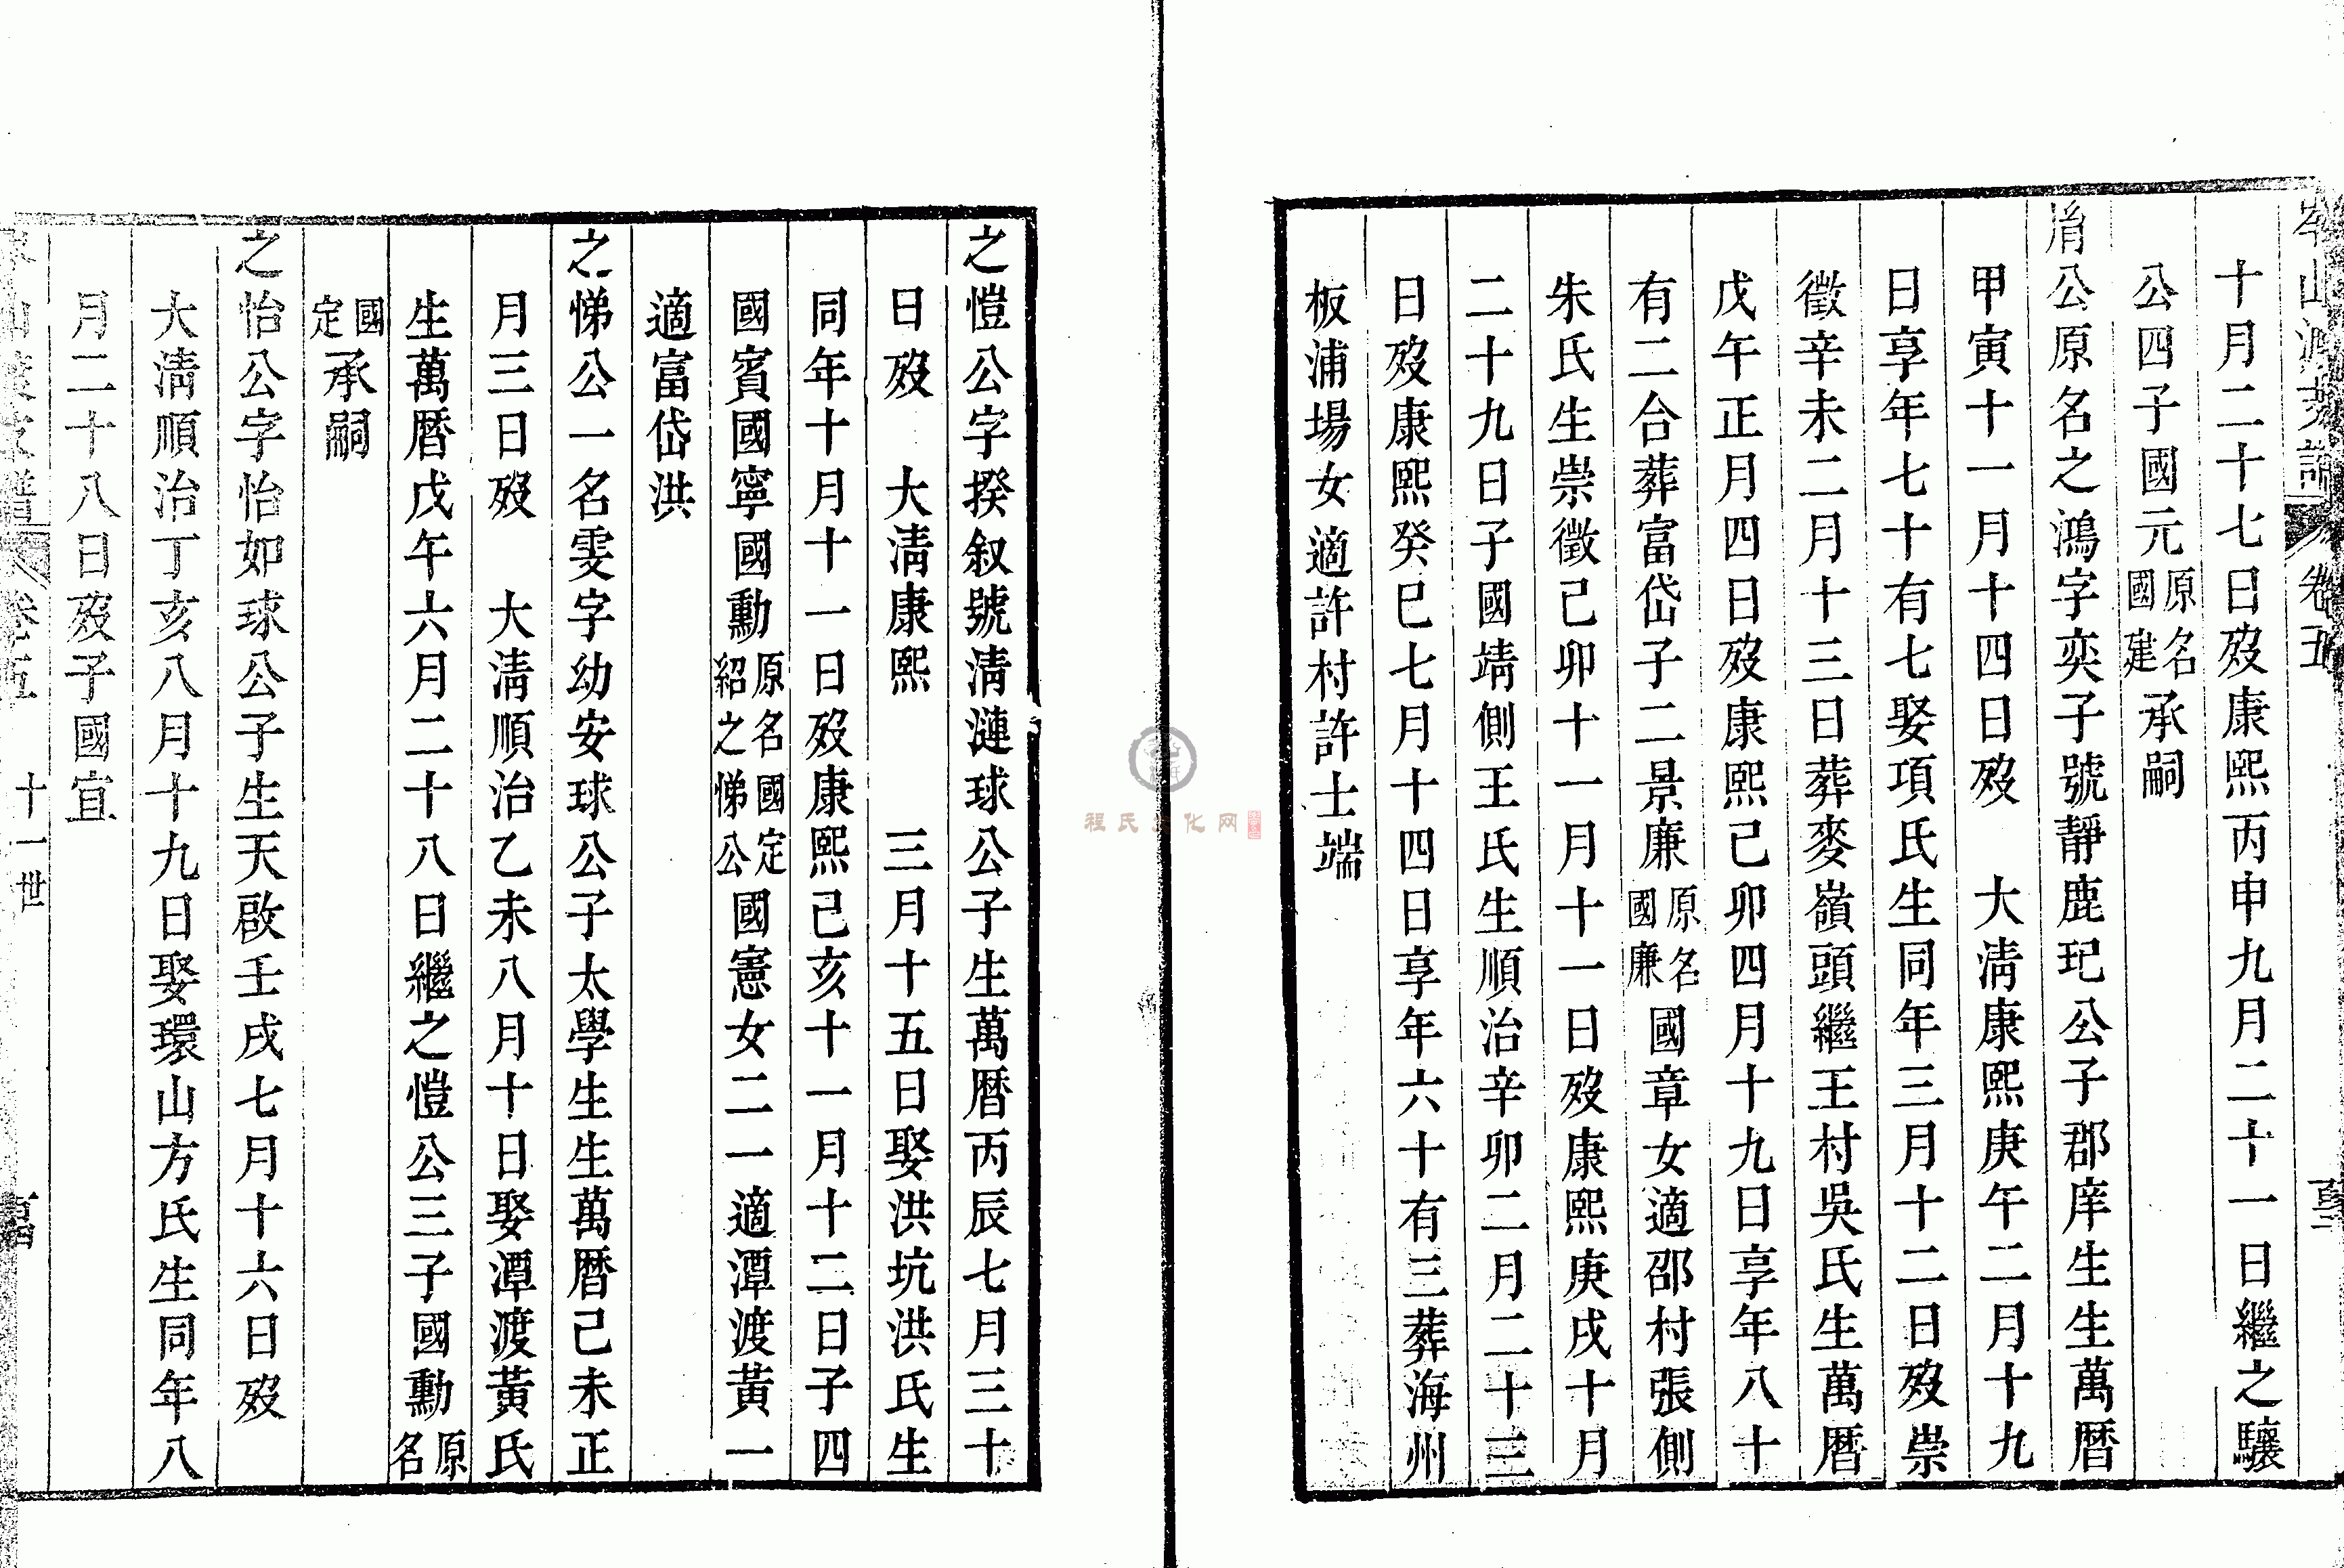 十月二十七日歿康熙丙申九月二十一日繼之驤
公四子國元原名國建承嗣
胤公原名之鴻字奕子號靜鹿玘公子郡庠生生萬曆
甲寅十一月十四日歿　大淸康熙庚午二月十九
日享年七十有七娶項氏生同年三月十二日歿崇
徵辛未二月十三日葬麥嶺頭繼王村吳氏生萬曆
戊午正月四日歿康熙己卯四月十九日享年八十
有二合葬富岱子二景廉原名國廉國章女適邵村張側
朱氏生崇徵己卯十一月十一日歿康熙庚戌十月
二十九日子國靖側王氏生順治辛卯二月二十三
日歿康熙癸巳七月十四日享年六十有三葬海州
板浦場女適許村許士端
之愷公字揆叙號淸漣球公子生萬曆丙辰七月三十
日歿　大淸康熙　　三月十五日娶洪坑洪氏生
同年十月十一日歿康熙己亥十一月十二日子四
國賓國寧國勳原名國定紹之悌公國憲女二一適潭渡黃一
適富岱洪
之悌公一名雯字幼安球公子太學生生萬曆己未正
月三日歿　大淸順治乙未八月十日娶潭渡黃氏
生萬曆戊午六月二十八日繼之愷公三子國勳原名
國定承嗣
之怡公字怡如球公子生天啟壬戌七月十六日歿
大淸順治丁亥八月十九日娶環山方氏生同年八
月二十八日歿子國宜
卷五　十一世
程氏文化网